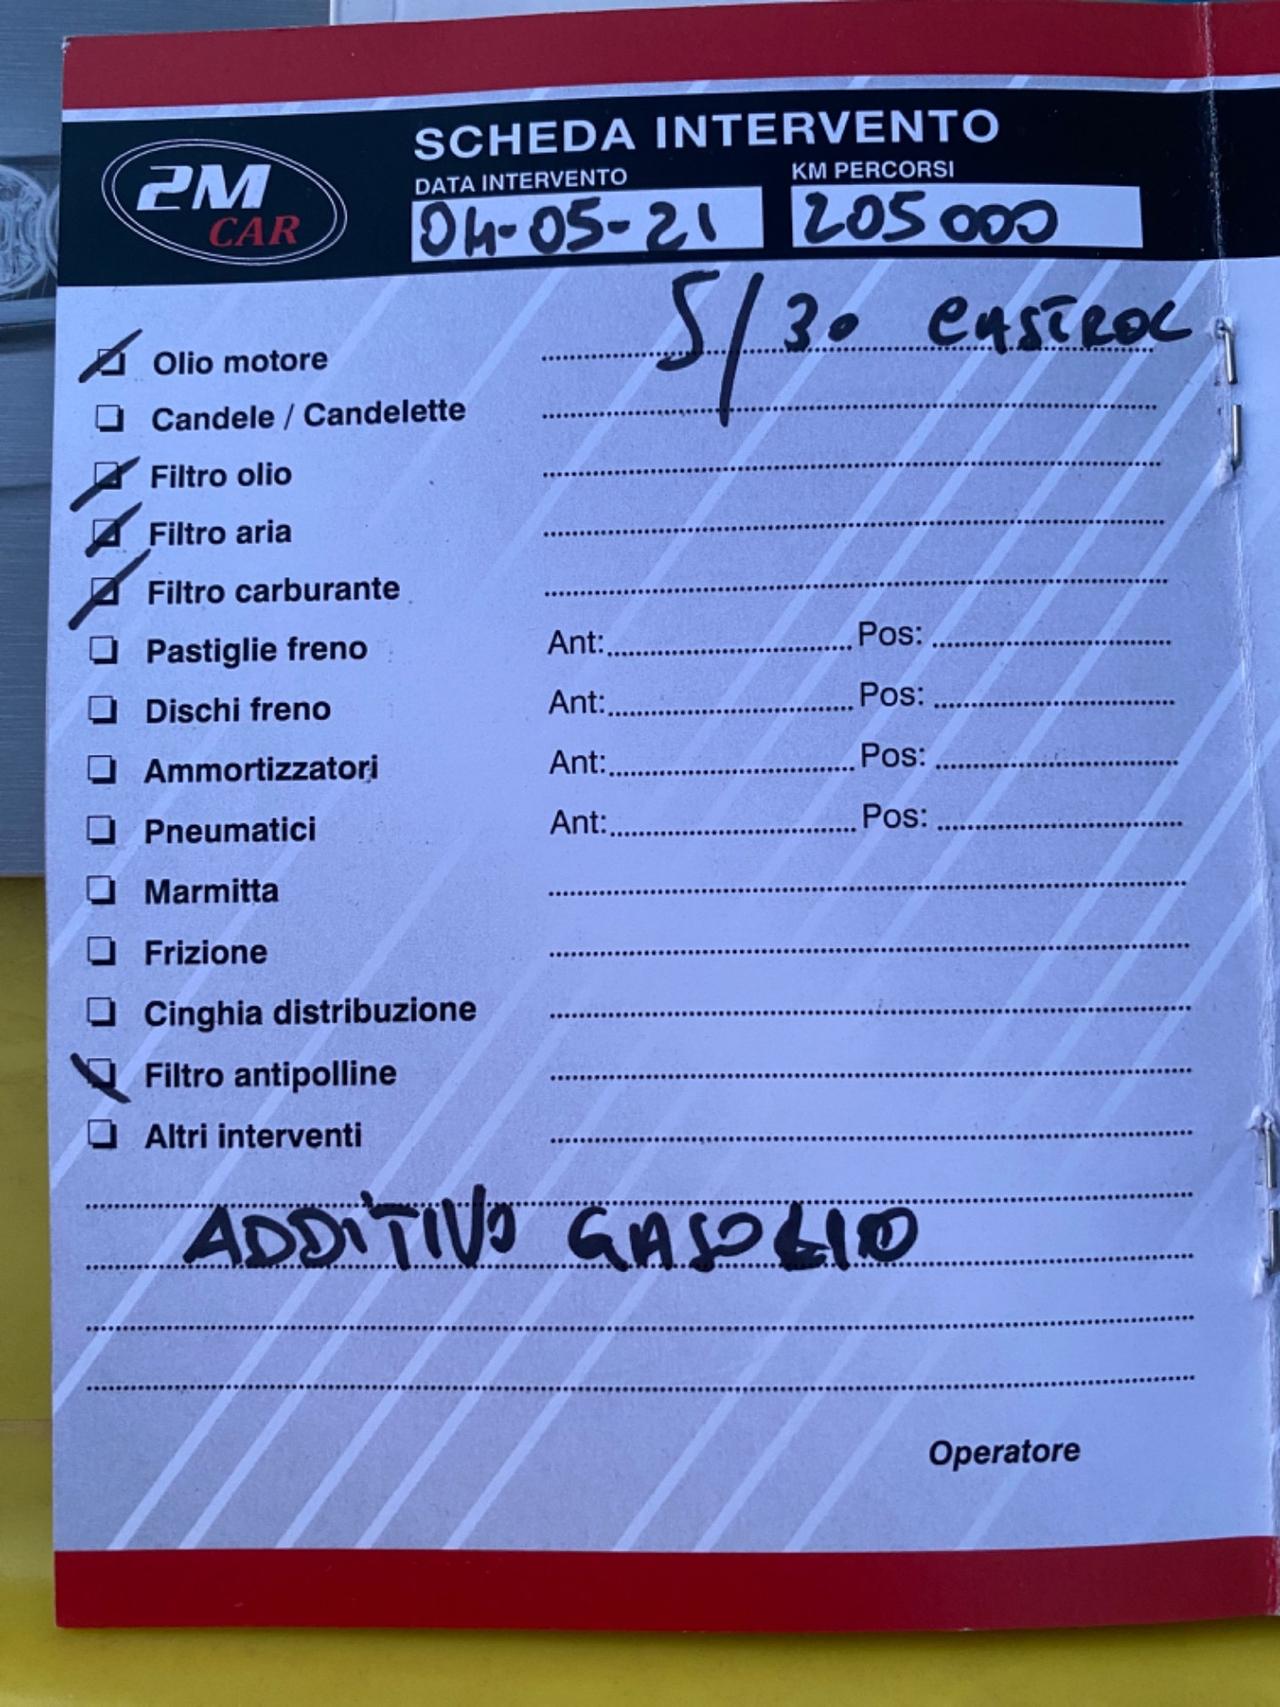 2M
CAR
SCHEDA INTERVENTO
DATA INTERVENTO KM PERCORSI
04-05-21 205000
Olio motore 5/30 CASTROL
Candele / Candelette
Filtro olio
Filtro aria
Filtro carburante
Pastiglie freno Ant: Pos:
Dischi freno Ant: Pos:
Ammortizzatori Ant: Pos:
Pneumatici Ant: Pos:
Marmitta
Frizione
Cinghia distribuzione
Filtro antipolline
Altri interventi
ADDITIVO GASOLIO
Operatore